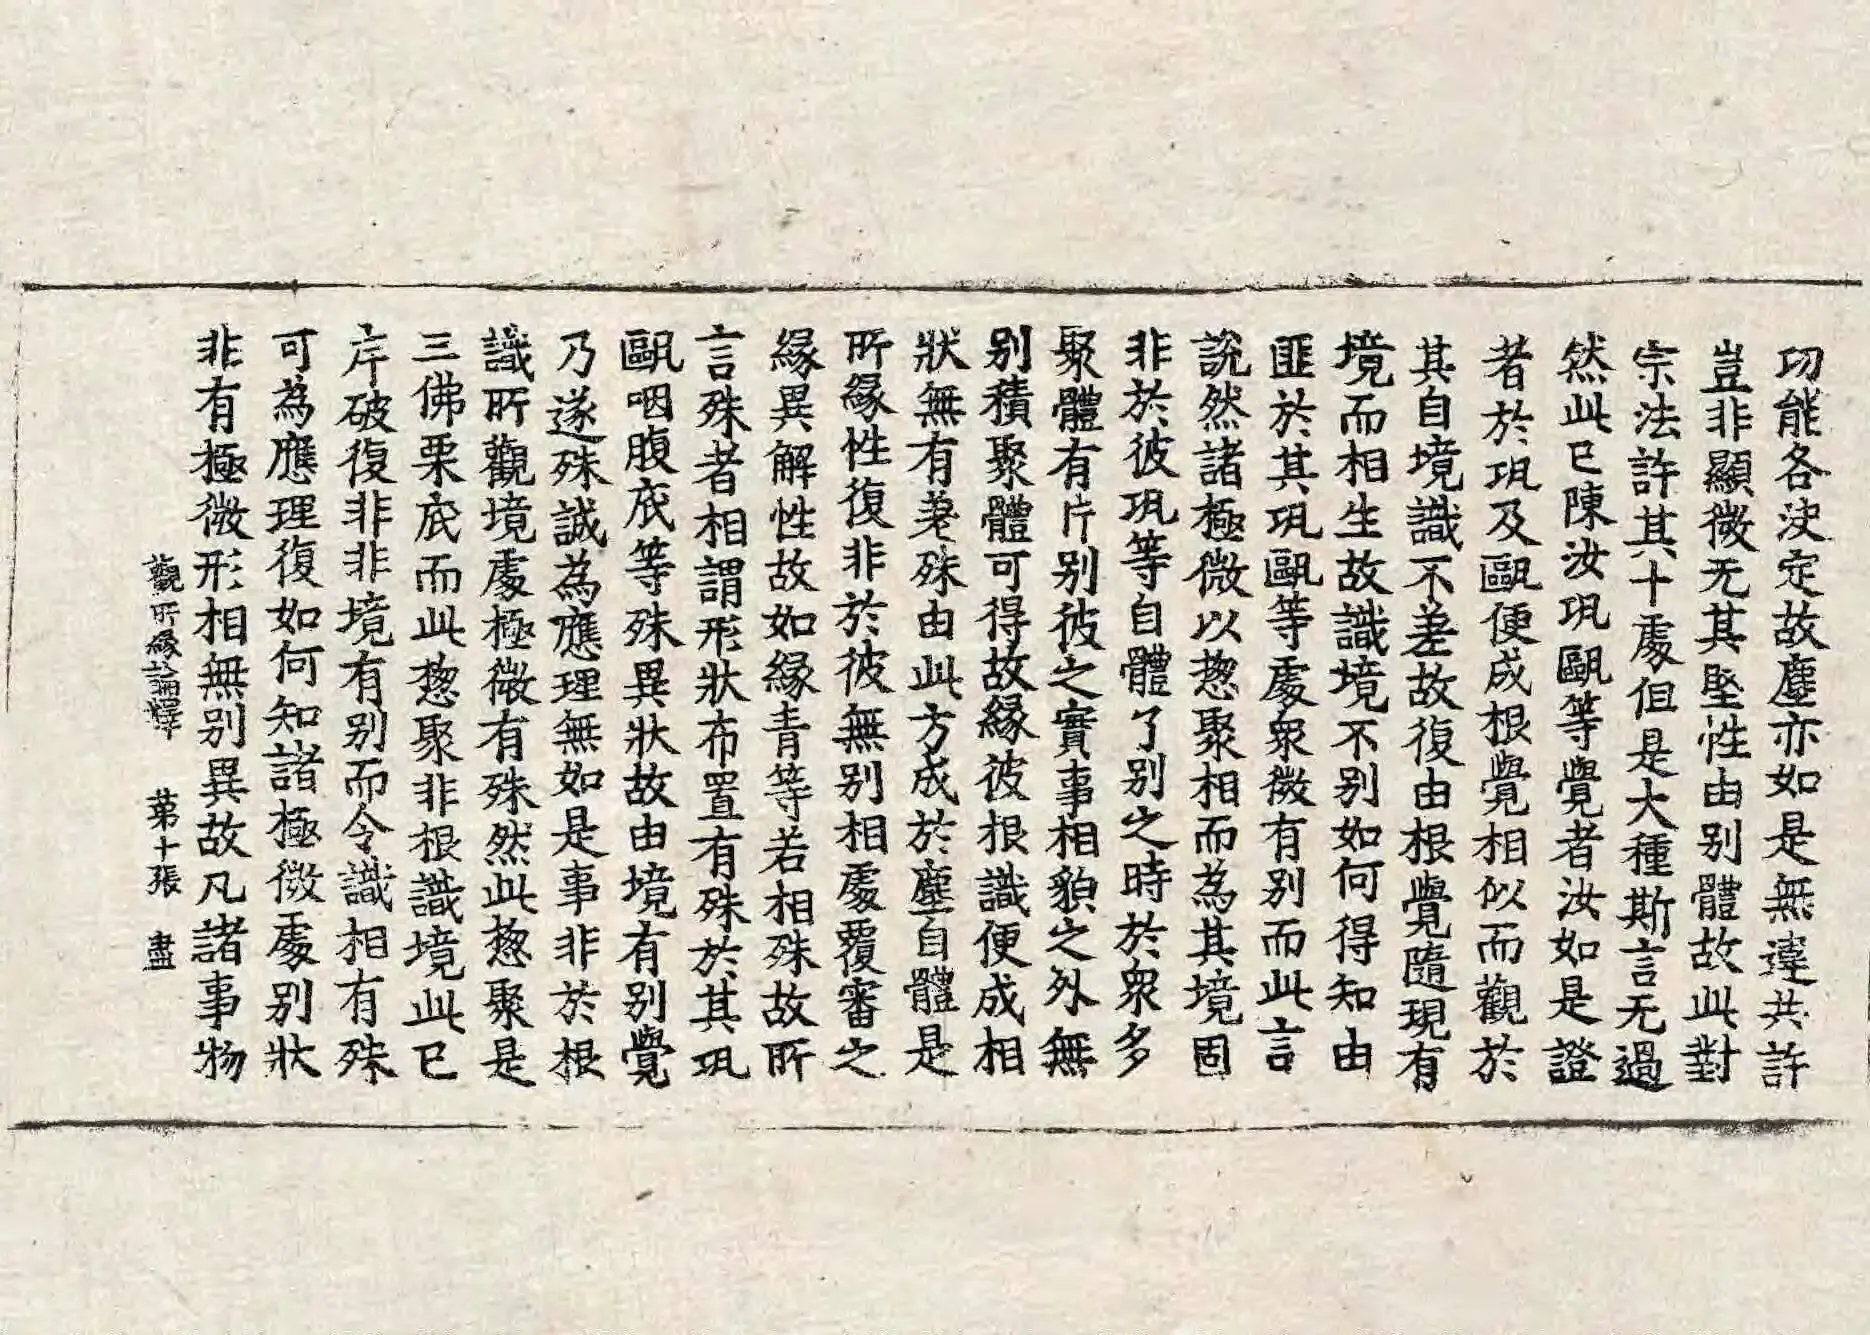 功能各决定故塵亦如是無違共許
豈非顯微无其堅性由别體故此對
宗法許其十處但是大種斯言无過
然此已陳汝㼚甌等覺者汝如是證
者於㼚及甌便成根覺相似而觀於
其自境識不差故復由根覺隨現有
境而相生故識境不别如何得知由
匪於其㼚甌等處衆微有别而此言
說然諸極微以惣聚相而為其境固
非於彼㼚等自體了别之時於衆多
聚體有片别彼之實事相貌之外無
别積聚體可得故緣彼根識便成相
狀無有差殊由此方成於塵自體是
所緣性復非於彼無别相處覆審之
緣異解性故如緣青等若相殊故所
言殊者相謂形狀布置有殊於其㼚
甌咽腹底等殊異狀故由境有别覺
乃遂殊誠為應理無如是事非於根
識所觀境處極微有殊然此惣聚是
三佛栗底而此惣聚非根識境此已
斥破復非非境有别而令識相有殊
可為應理復如何知諸極微處别狀
非有極微形相無别異故凡諸事物
觀所緣論釋 第十張 盡